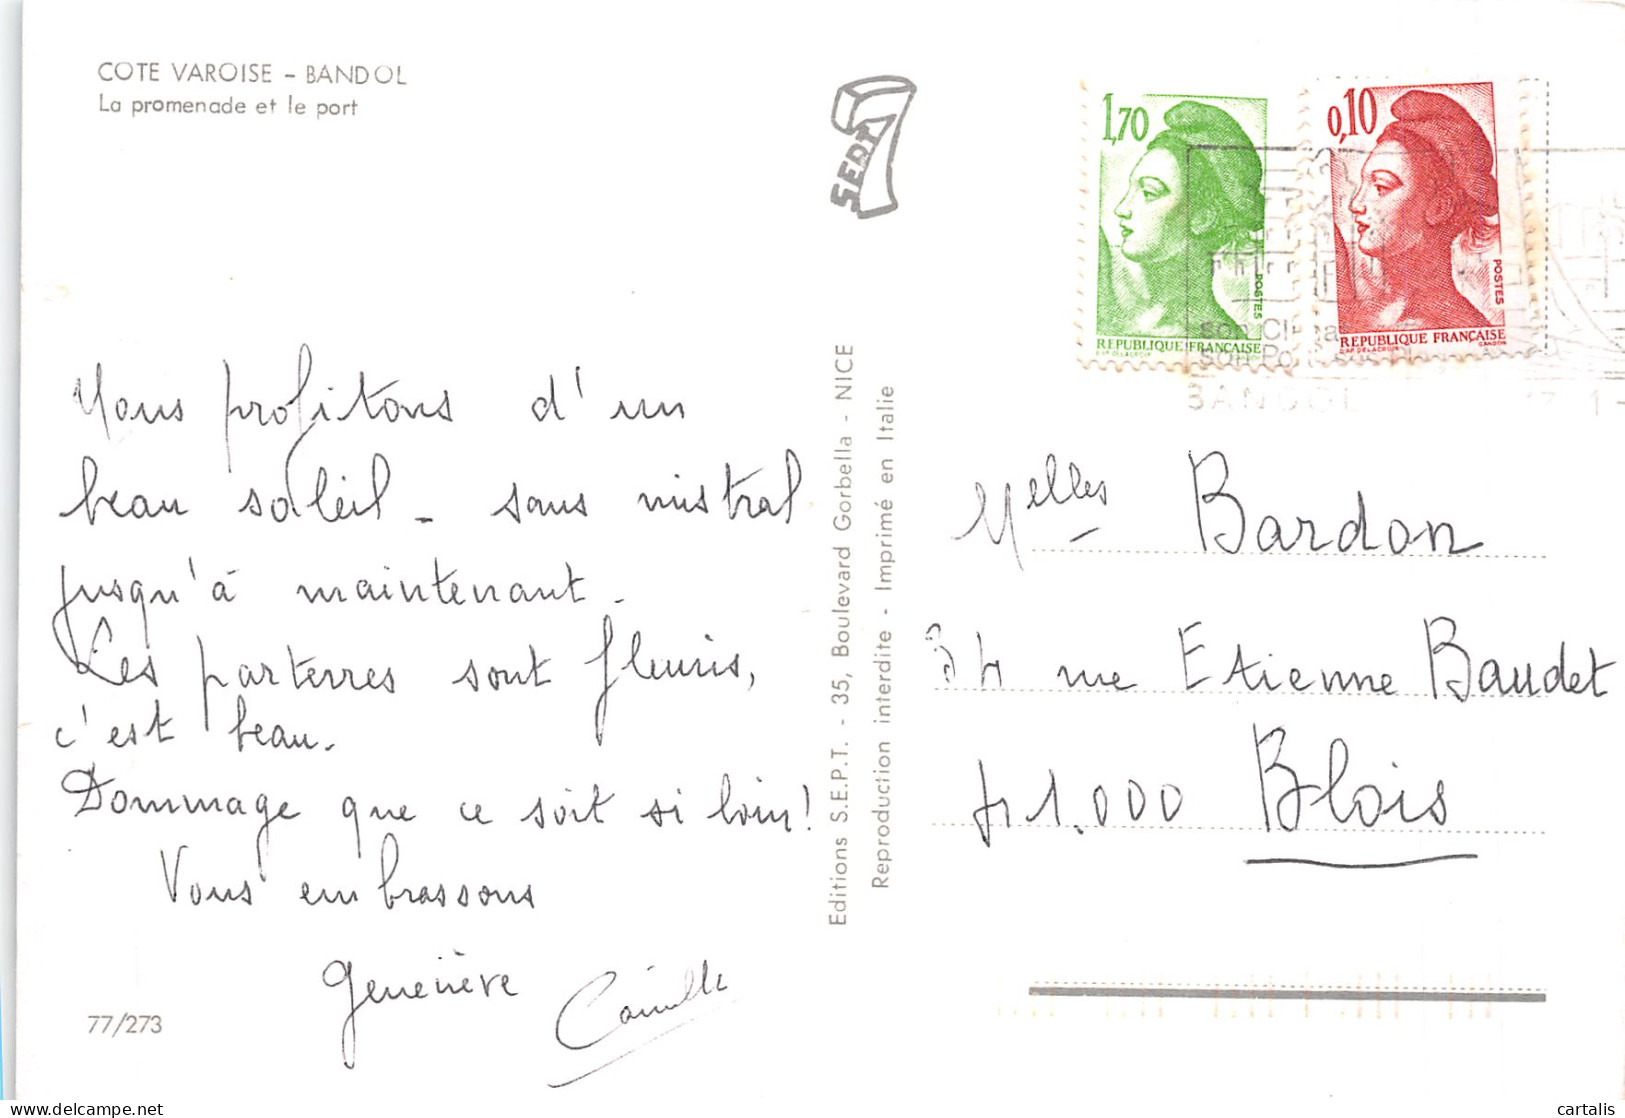 COTE VAROISE – BANDOL
La promenade et le port
SEPT
7
1,70
POSTES
REPUBLIQUE FRANÇAISE
0,10
POSTES
REPUBLIQUE FRANÇAISE
GANDON
son
son
BANDOL
Nous profitons d'un
beau soleil - sans mistral
jusqu'à maintenant.
Les parterres sont fleuris,
c'est beau.
Dommage que ce soit si loin!
Vous embrassons
Geneviève Camille
77/273
Editions S.E.P.T. - 35, Boulevard Gorbella - NICE
Reproduction interdite - Imprimé en Italie
Melles Bardon
34 rue Etienne Baudet
41.000 Blois
cartalis